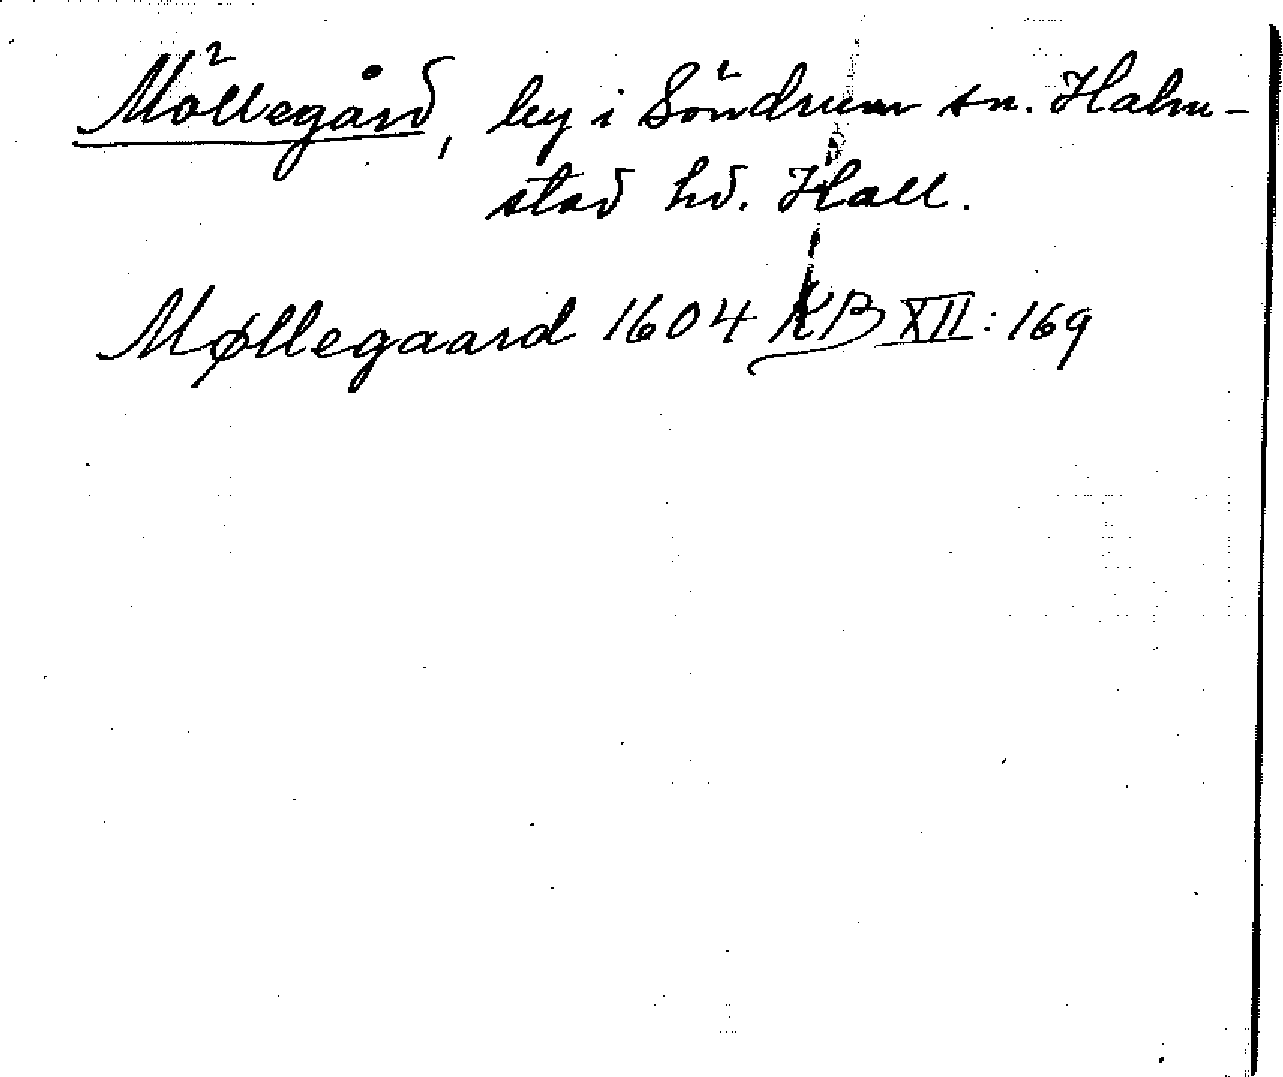 Möllegård, by i Söndrum sn. Halm-
stad hd. Hall.
Møllegaard 1604 KB XII: 169